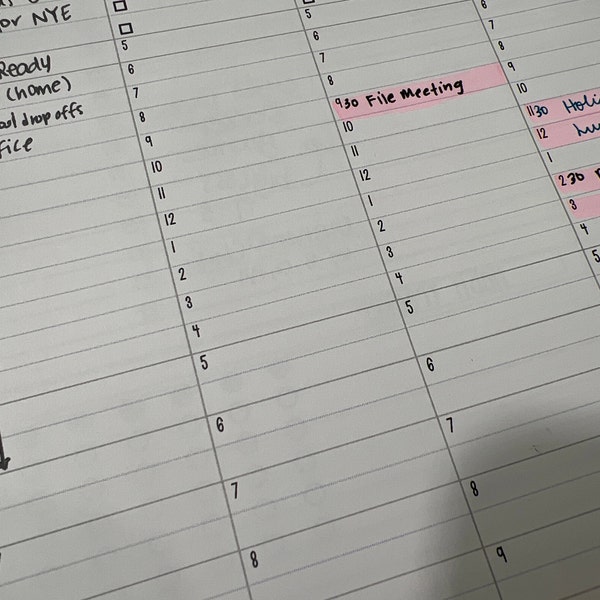 for NYE
Ready
(home)
drop offs
5
6
7
8
9
10
11
12
1
2
3
4
5
6
7
8
5
6
7
8
930 File Meeting
10
11
12
1
2
3
4
5
6
7
8
9
6
7
8
9
10
1130
12
1
230
3
4
5